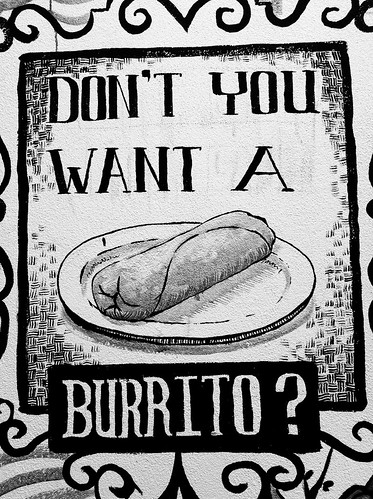 DON'T YOU
WANT A
BURRITO?